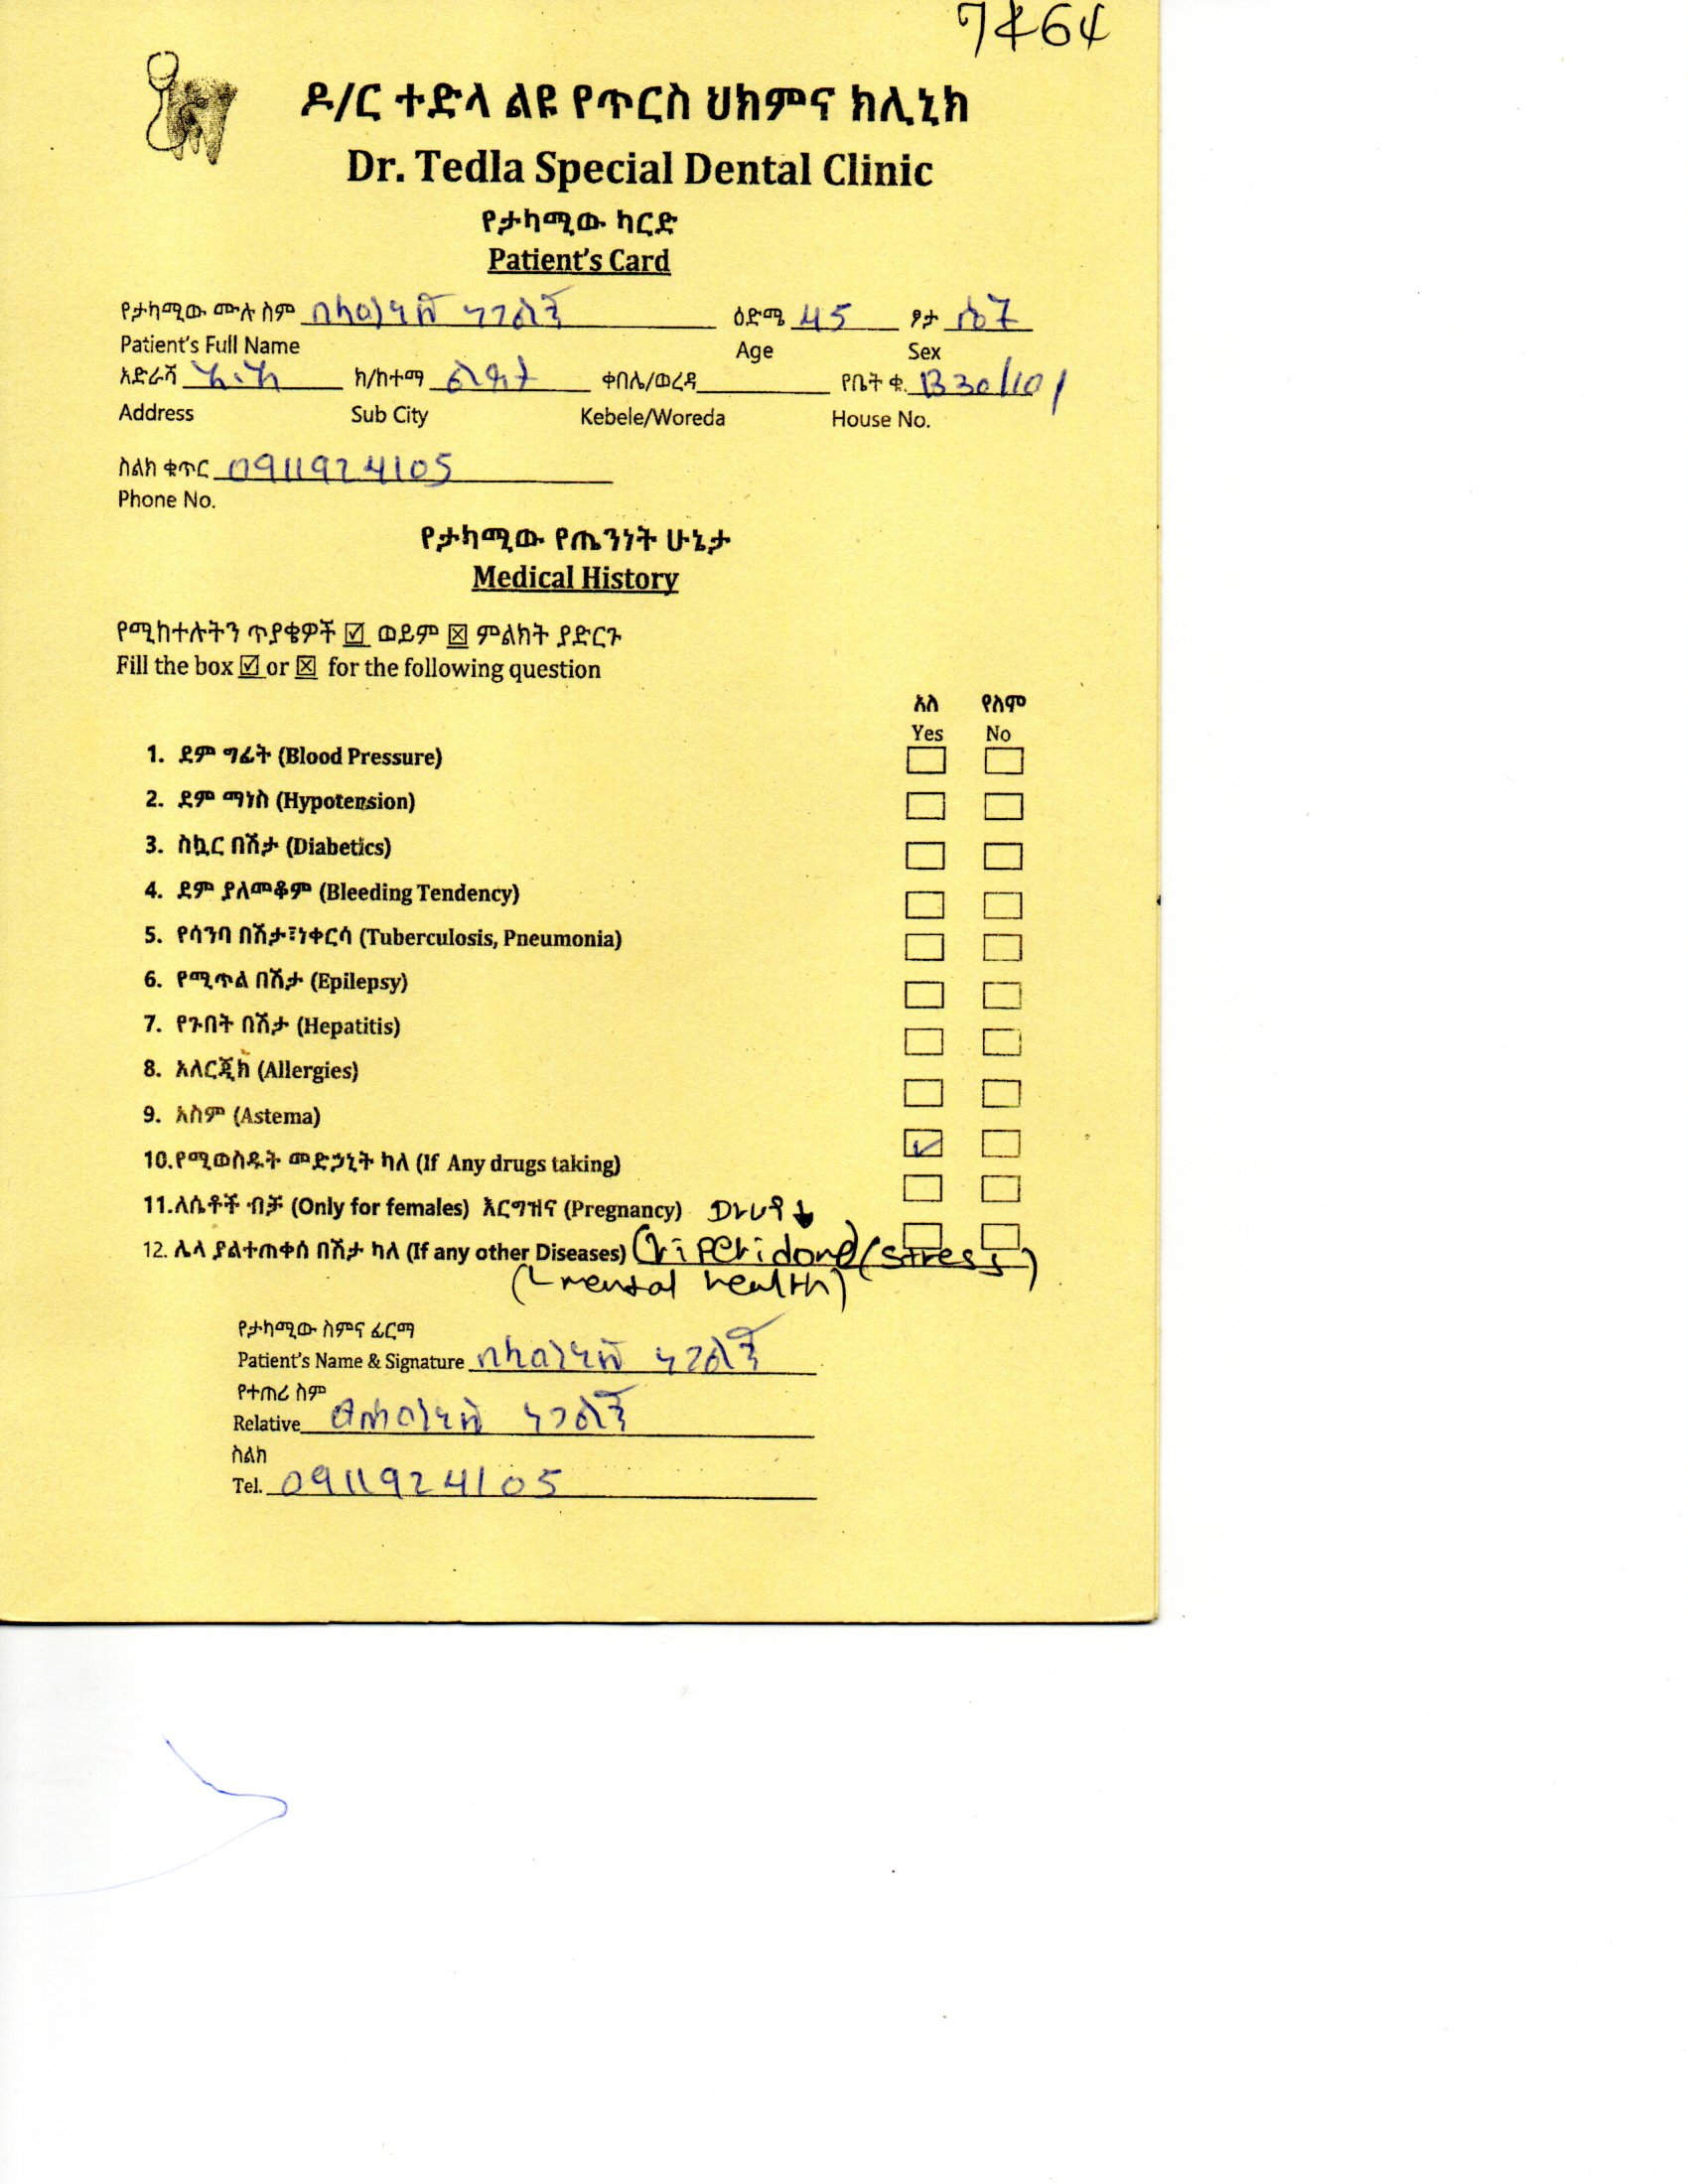 ዶ/ር ተድላ ልዩ የጥርስ ህክምና ክሊኒክ
Dr. Tedla Special Dental Clinic
የታካሚው ካርድ
Patient's Card
የታካሚው ሙሉ ስም ዕድሜ 45 ፆታ ሴት
Patient's Full Name Age Sex
አድራሻ አ.አ ክ/ከተማ ልደታ ቀበሌ/ወረዳ የቤት ቁ. B30/101
Address Sub City Kebele/Woreda House No.
ስልክ ቁጥር 0911924105
Phone No.
የታካሚው የጤንነት ሁኔታ
Medical History
የሚከተሉትን ጥያቄዎች ☑ ወይም ☒ ምልክት ያድርጉ
Fill the box ☑ or ☒ for the following question
አለ የለም
Yes No
1. ደም ግፊት (Blood Pressure)
2. ደም ማነስ (Hypotension)
3. ስኳር በሽታ (Diabetics)
4. ደም ያለመቆም (Bleeding Tendency)
5. የሳንባ በሽታ፣ነቀርሳ (Tuberculosis, Pneumonia)
6. የሚጥል በሽታ (Epilepsy)
7. የጉበት በሽታ (Hepatitis)
8. አለርጂክ (Allergies)
9. አስም (Astema)
10.የሚወስዱት መድኃኒት ካለ (If Any drugs taking)
11.ለሴቶች ብቻ (Only for females) እርግዝና (Pregnancy)
12. ሌላ ያልተጠቀሰ በሽታ ካለ (If any other Diseases) (risperidone) (stress)
(mental health)
የታካሚው ስምና ፊርማ
Patient's Name & Signature
የተጠሪ ስም
Relative
ስልክ
Tel. 0911924105